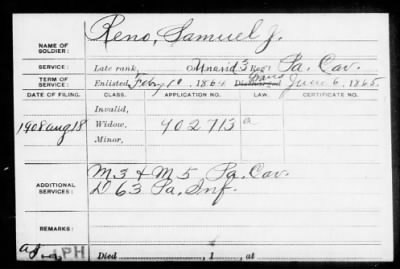 Reno, Samuel J.
NAME OF SOLDIER:
SERVICE: Late rank, Co. Unasid 3 Reg't Pa. Cav.
TERM OF SERVICE: Enlisted Feby 10, 1864 Discharged June 6, 1865.
DATE OF FILING. CLASS. APPLICATION NO. LAW. CERTIFICATE NO.
Invalid,
1908 Aug 18 Widow, 902713 a
Minor,
ADDITIONAL SERVICES: M 3 & M 5 Pa. Cav.
D 63 Pa. Inf.
REMARKS:
PH
Died , 1 , at